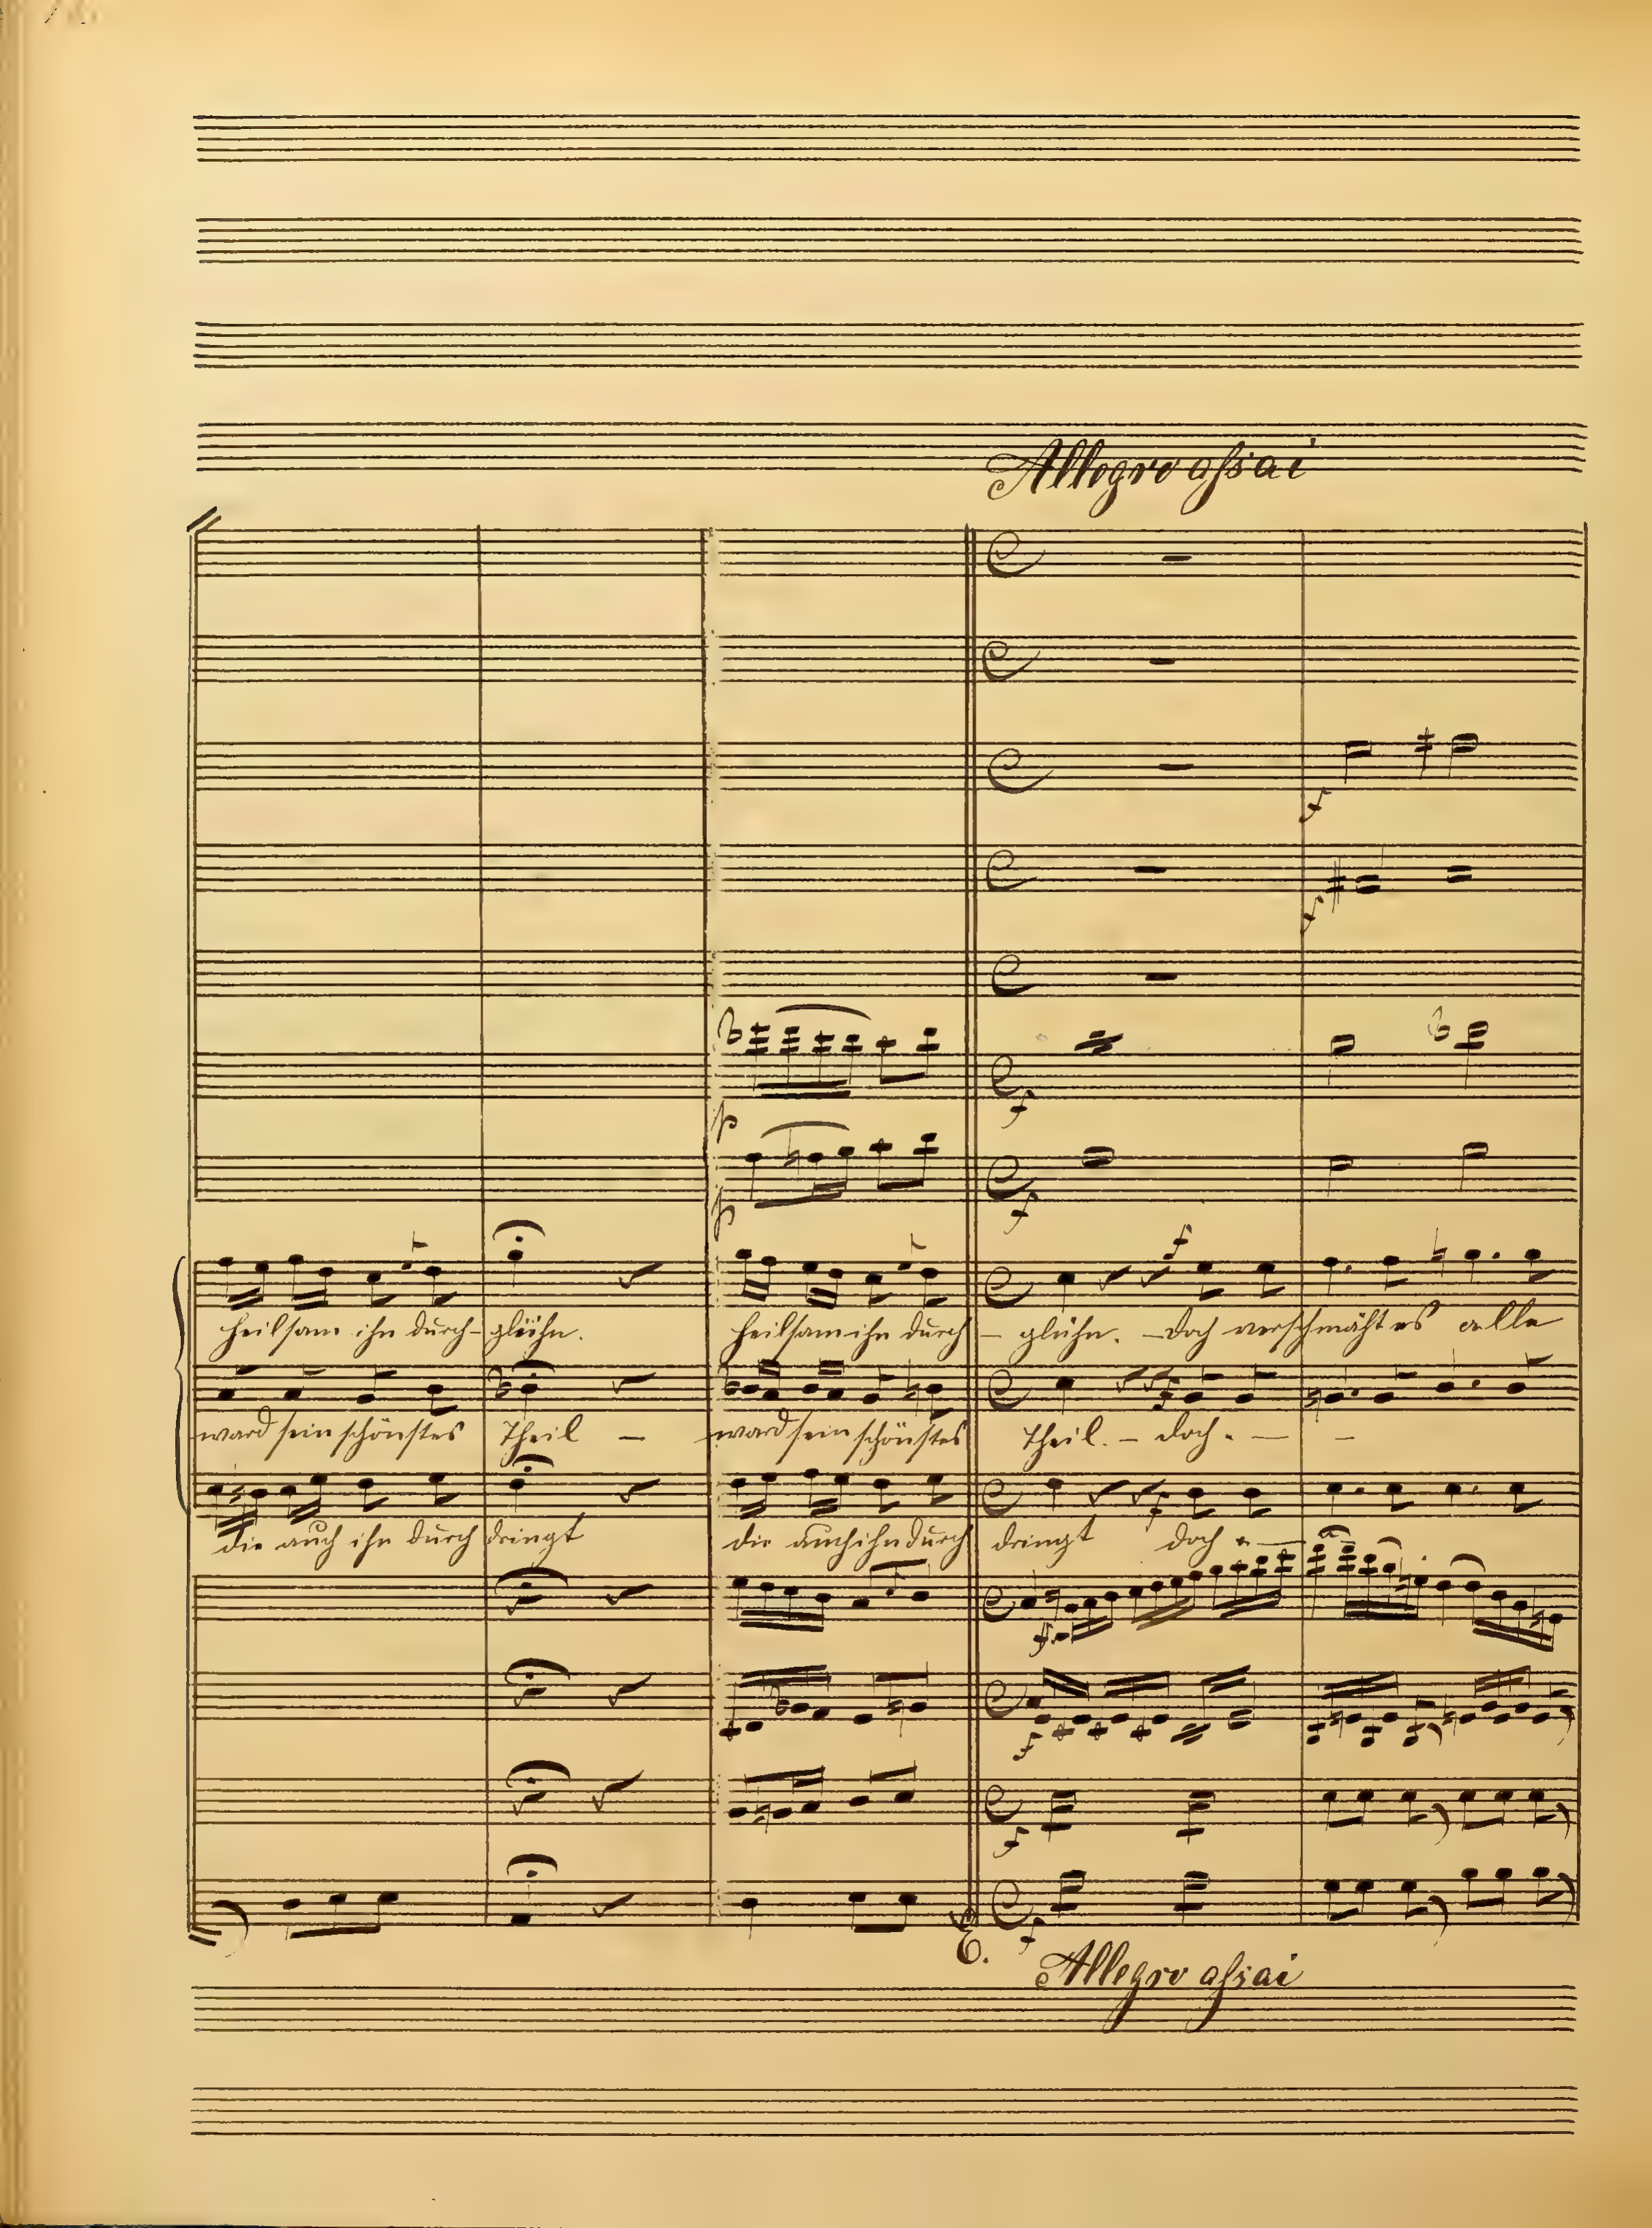 Allegro assai
f
f
p
f
p
f
f
heilsam ihn durch- glühn. heilsam ihn durch - glühn. - doch verschmäht es alle
f
ward sein schönstes Theil - ward sein schönstes Theil. - doch. - -
f
die auch ihn durch dringt die auch ihn durch dringt doch
f
f
f
f
6.
Allegro assai